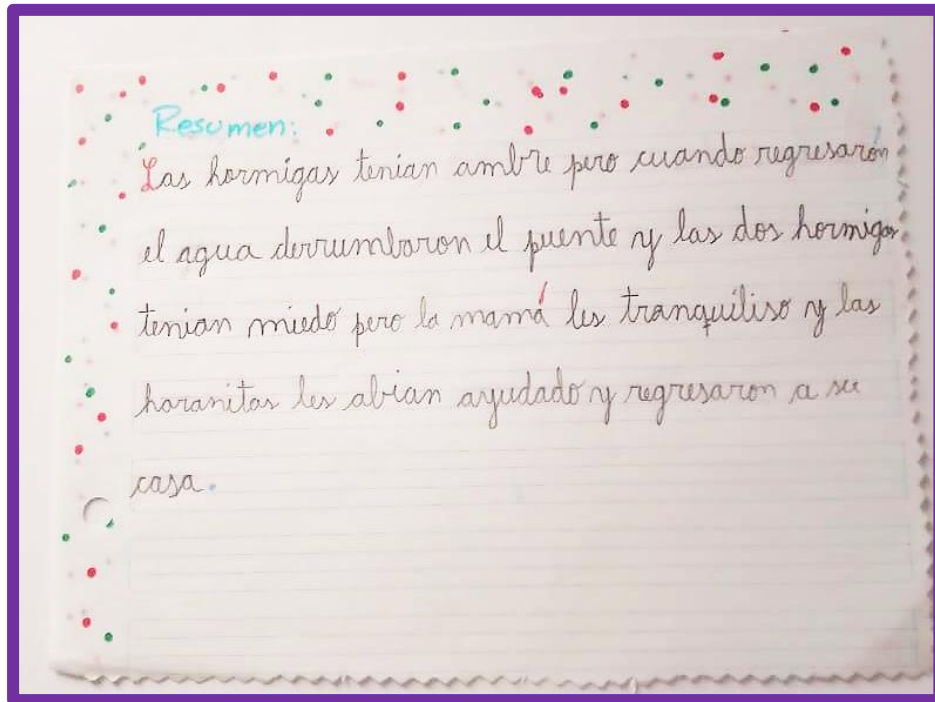 Resumen:
Las hormigas tenian ambre pero cuando regresarón
el agua derrumbaron el puente y las dos hormigas
tenian miedo pero la mamá les tranquiliso y las
haranitas les abian ayudado y regresaron a su
casa.